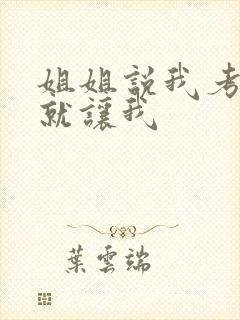 姐姐説我考
就讓我
葉雲端